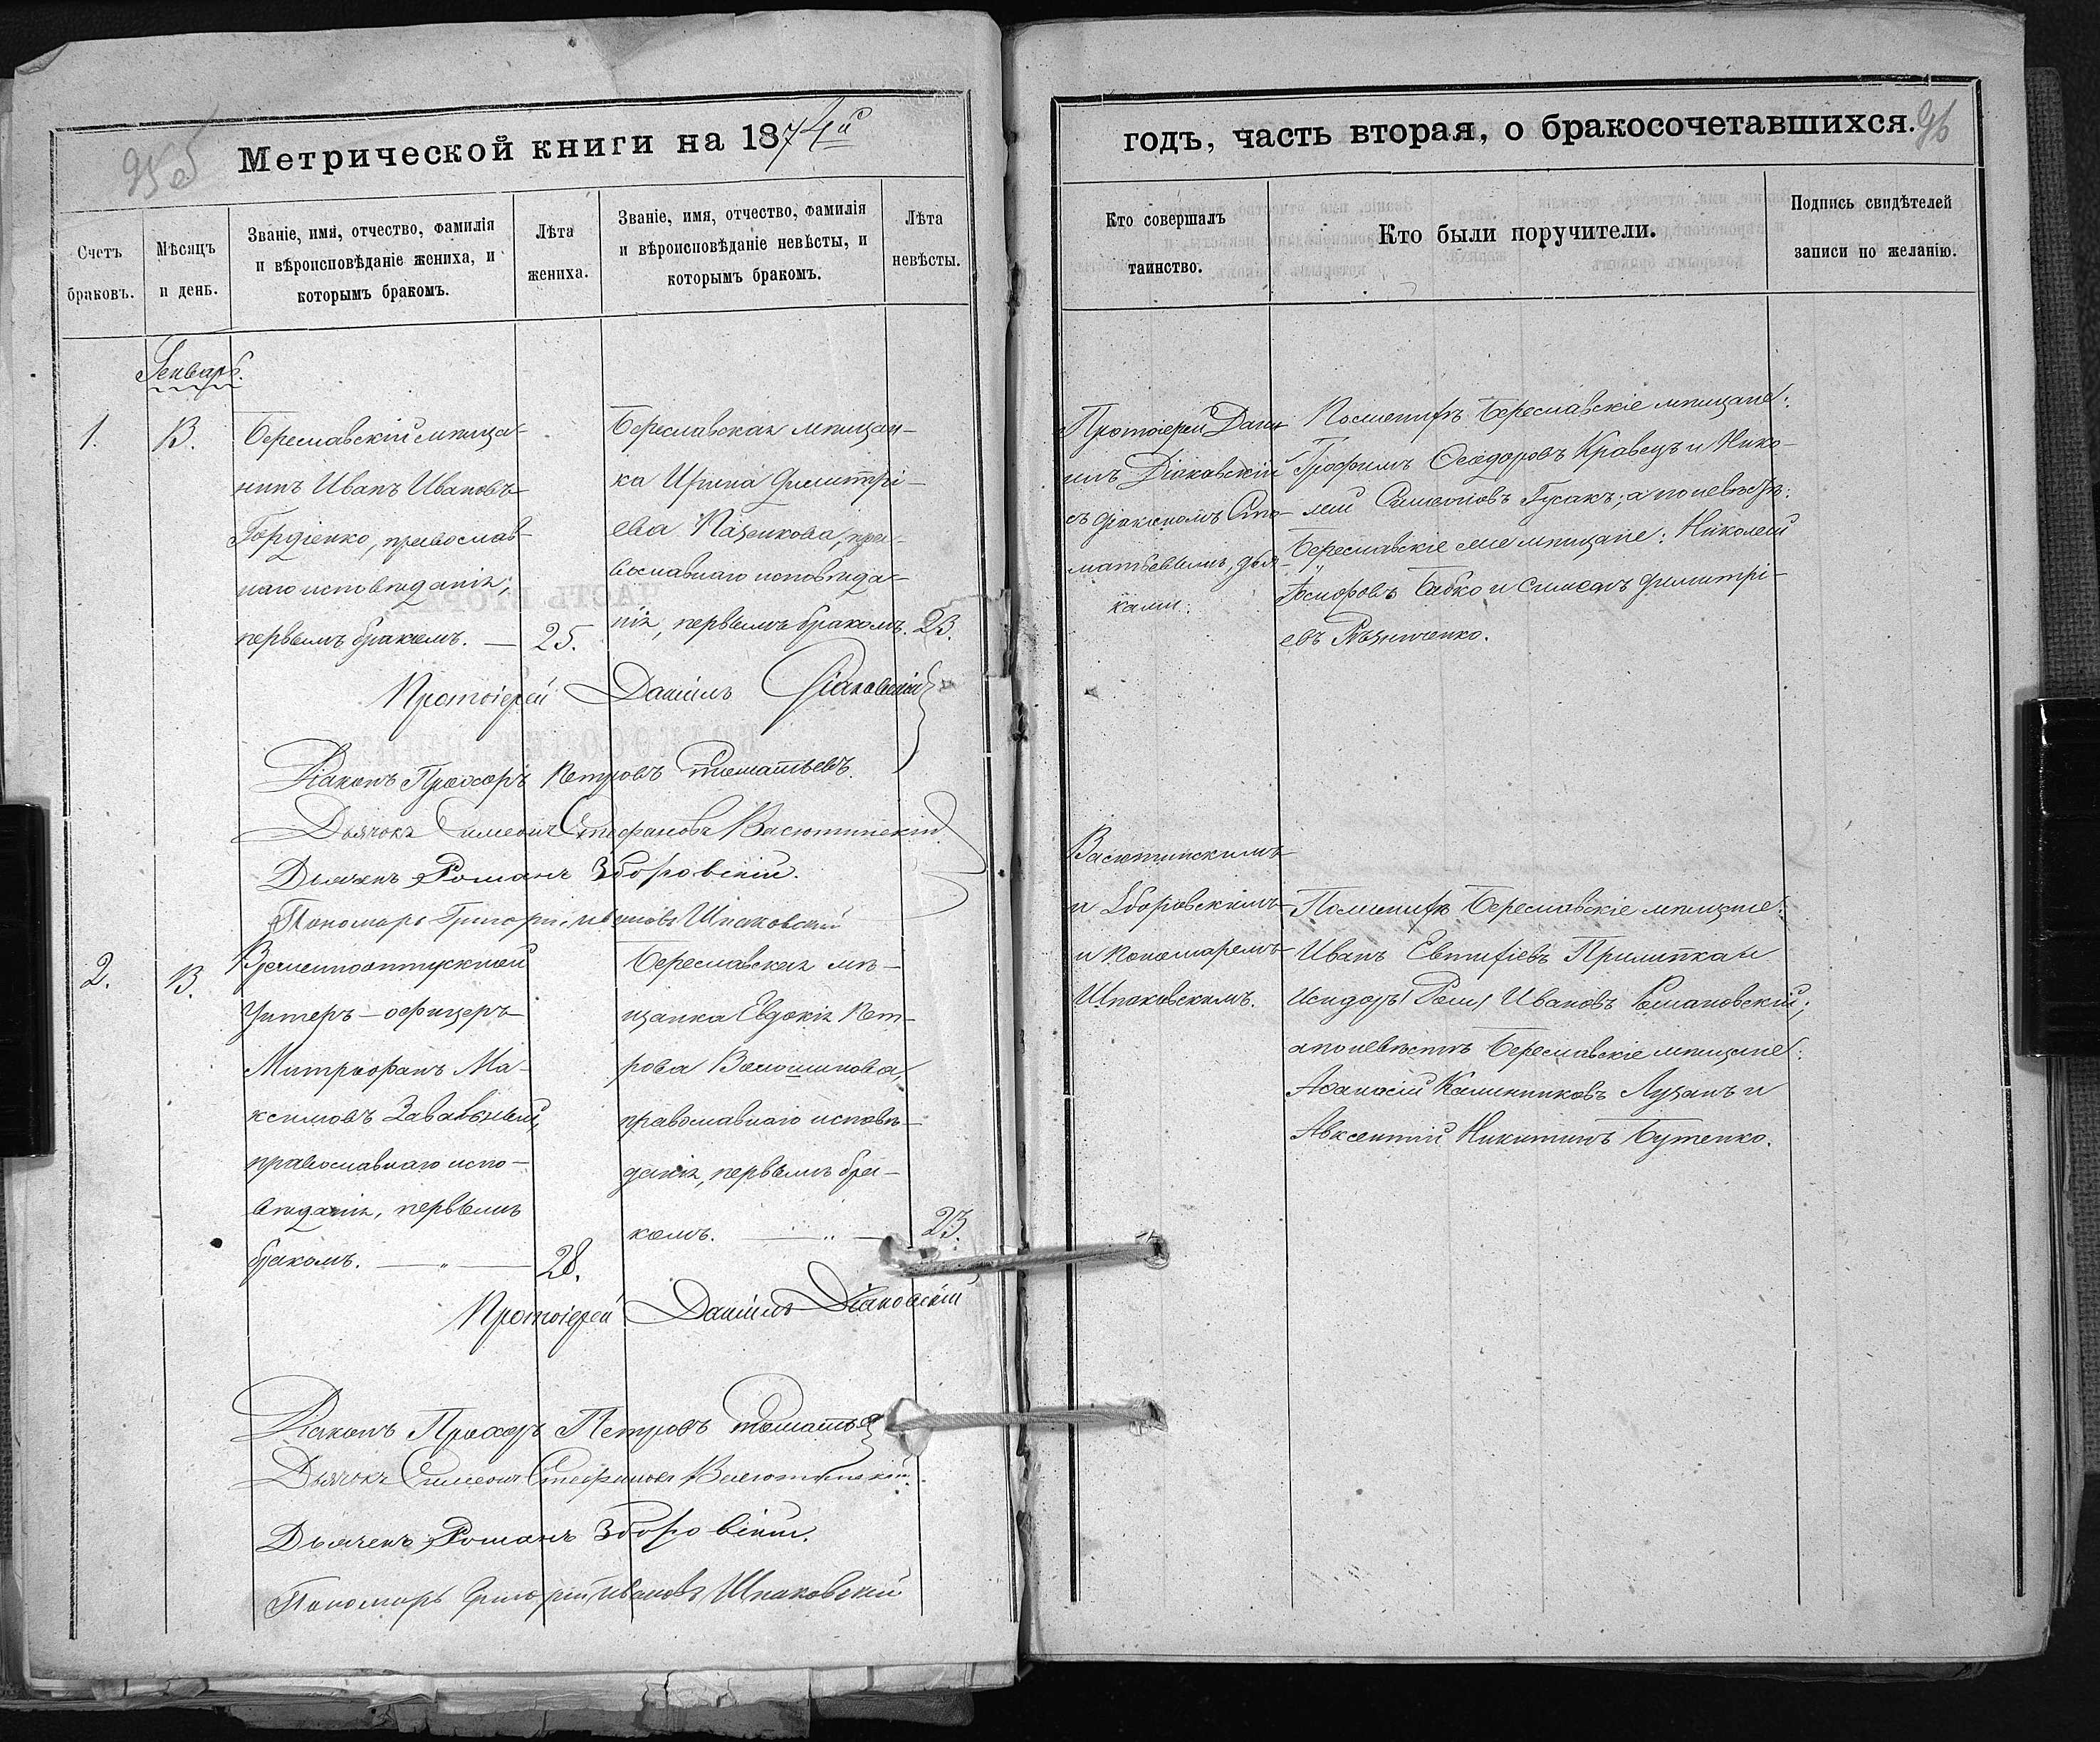 95 об
Метрической книги на 1874й
Счетъ браковъ.
Мѣсяцъ и день.
Званіе, имя, отчество, фамилія
и вѣроисповѣданіе жениха, и
которымъ бракомъ.
Лѣта
жениха.
Званіе, имя, отчество, фамилія
и вѣроисповѣданіе невѣсты, и
которымъ бракомъ.
Лѣта
невѣсты.
Генварь.
1.
13.
Береславскій мѣща-
нинъ Иванъ Ивановъ
Гордіенко, православ-
наго исповѣданія,
первымъ бракомъ. — 25.
Береславская мѣщан-
ка Ирина Димитрі-
ева Пащенкова, пра-
вославнаго исповѣда-
нія, первымъ бракомъ. 23.
Протоіерей Даніилъ Діаковскій
Діаконъ Прохоръ Петровъ Стоматьевъ.
Дьячокъ Симеонъ Стефановъ Васютинскій
Дьячекъ Романъ Зборовскій.
Пономарь Григорій Ивановъ Шпаковскій
2.
13.
Временноотпускной
Унтеръ-офицеръ
Митрофанъ Ма-
ксимовъ Завальный,
православнаго испо-
вѣданія, первымъ
бракомъ. — " — 28.
Береславская мѣ-
щанка Евдокія Пет-
рова Волошинова,
православнаго исповѣ-
данія, первымъ бра-
комъ. — " — 23.
Протоіерей Даніилъ Діаковскій
Діаконъ Прохоръ Петровъ Стоматьев
Дьячокъ Симеонъ Стефановъ Васютинскій
Дьячекъ Романъ Зборовскій.
Пономарь Григорій Ивановъ Шпаковскій
годъ, часть вторая, о бракосочетавшихся.
96
Кто совершалъ
таинство.
Кто были поручители.
Подпись свидѣтелей
записи по желанію.
Протоіерей Дані-
илъ Діаковскій
съ діакономъ Сто-
матьевымъ, дьяч-
ками:
По женихѣ Береславскіе мѣщане:
Трофимъ Ѳеодоровъ Кравецъ и Нико-
лай Симеоновъ Гусакъ; а по невѣстѣ:
Береславскіе же мѣщане: Николай
Іосифовъ Бабко и Симеонъ Димитрі-
евъ Рѣзниченко.
Васютинскимъ
и Зборовскимъ
и Пономаремъ
Шпаковскимъ.
По женихѣ Береславскіе мѣщане:
Иванъ Евтифіевъ Прилипка и
Исидоръ Ивановъ Романовскій;
а по невѣстѣ Береславскіе мѣщане:
Аѳанасій Калинниковъ Лузанъ и
Авксентій Никитинъ Бутенко.